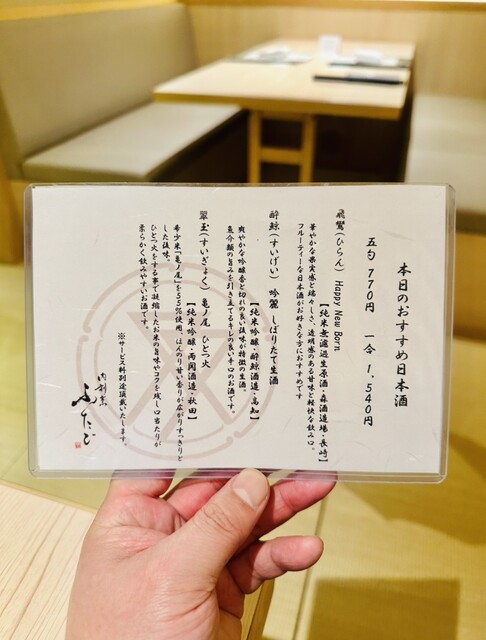 本日のおすすめ日本酒
五勺 770円 一合 1,540円
飛鸞(ひらん) Happy New Born
【純米無濾過生原酒・森酒造場・長崎】
華やかな果実感と瑞々しさ、透明感のある甘味と軽快な飲み口。
フルーティーな日本酒がお好きな方におすすめです
酔鯨(すいげい) 吟麗 しぼりたて生酒
【純米吟醸・酔鯨酒造・高知】
爽やかな吟醸香と切れの良い後味が特徴の生酒。
魚介類の旨みを引き立てるキレの良い辛口のお酒です。
翠玉(すいぎょく) 亀ノ尾 ひとつ火
【純米吟醸・両関酒造・秋田】
希少米「亀ノ尾」を55%使用。ほんのり甘い香りが広がりすっきりと
した後味。
ひとつ火をする事で凝縮したお米の旨味やコクを残し口当たりが
柔らかく飲みやすいお酒です。
※サービス料別途頂戴いたします。
肉割烹
ふたび